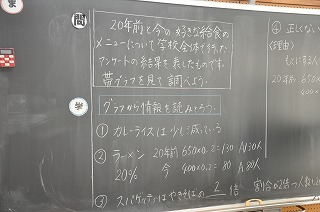 問
20年前と今の好きな給食の
メニューについて学校全体で行った
アンケートの結果を表したものです。
帯グラフを見て調べよう。
グラフから情報を読みとろう。
① カレーライスは少し減っている
② ラーメン 20年前 650×0.2=130 A 130人
20% 今 400×0.2=80 A 80人
③ スパゲッティはやきそばの 2 倍 割合が2倍→人数も
④ 正しくない
〈理由〉
20年前 650×